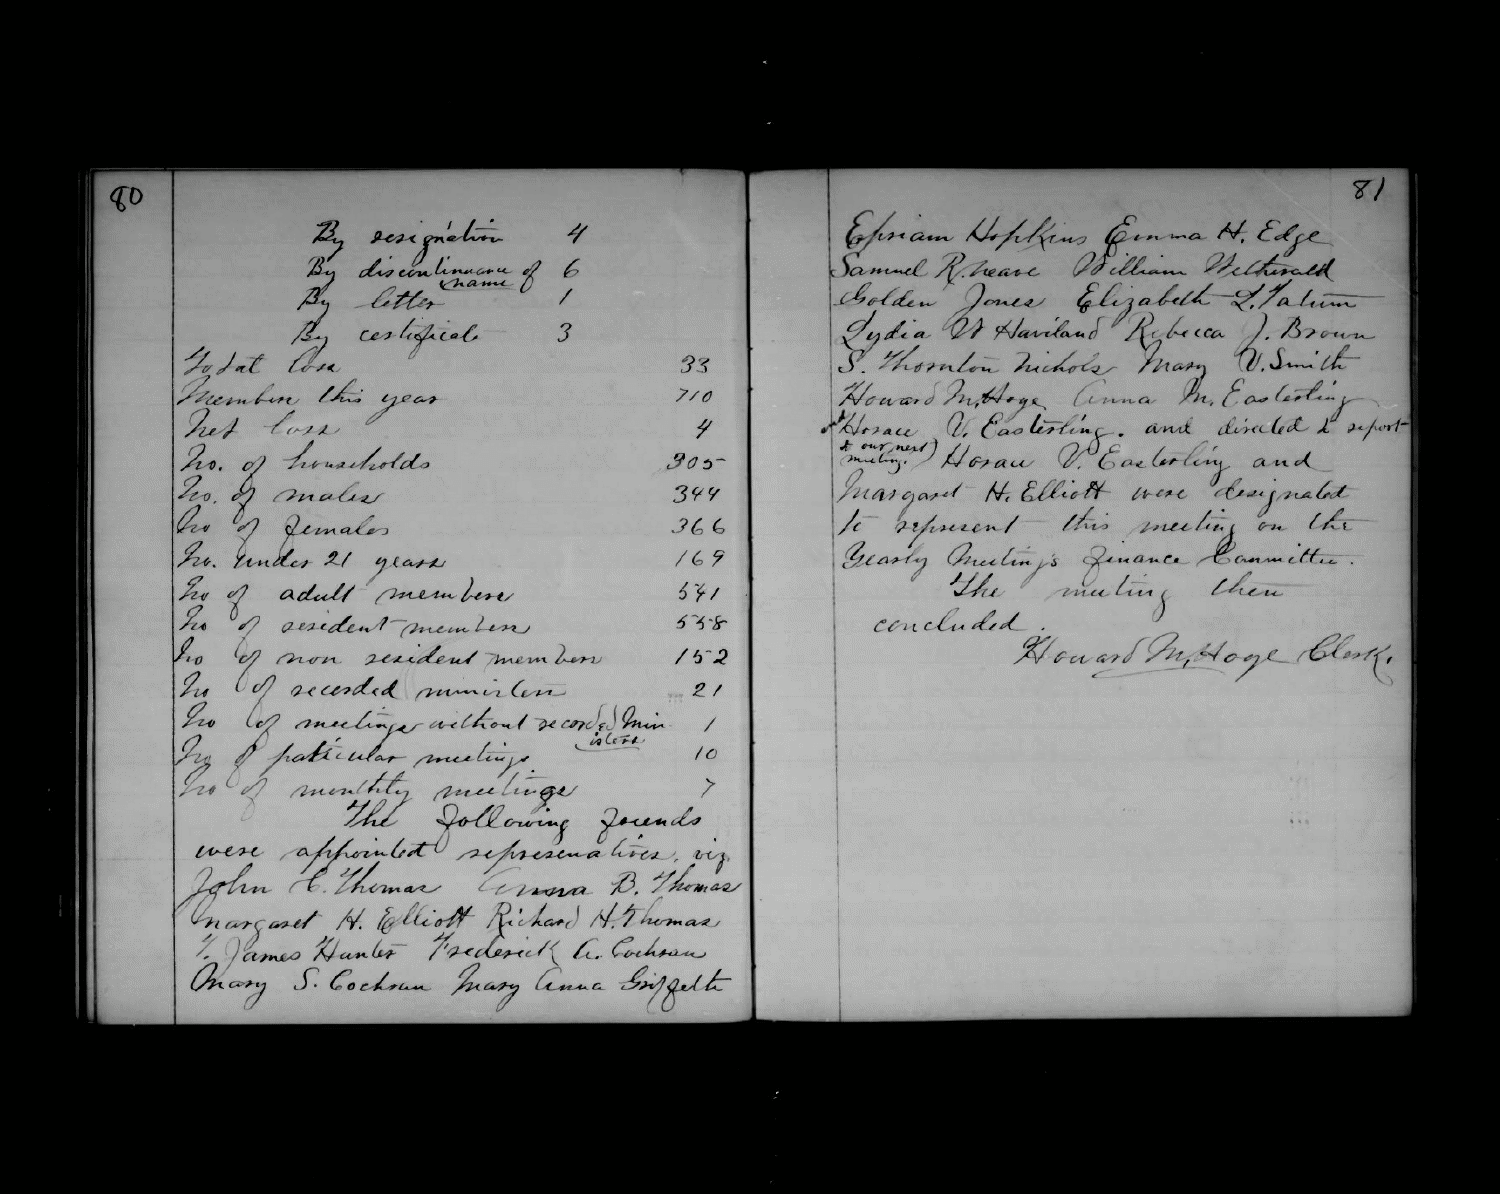 80
By resignation 4
By discontinuance of 6
name
By letter 1
By certificate 3
Total loss 33
Members this year 710
Net loss 4
No. of households 305
No. of males 344
No of females 366
No. under 21 years 169
No of adult members 541
No of resident members 558
No of non resident members 152
No of recorded ministers 21
No of meetings without recorded Min 1
isters
No of paticular meetings 10
No of monthly meetings 7
The following friends
were appointed represenatives, viz.
John C. Thomas Anna B. Thomas
Margaret H. Elliott Richard H. Thomas
T. James Hunter Frederick A. Cochran
Mary S. Cochran Mary Anna Griffith
81
Epriam Hopkins Emma H. Edge
Samuel R. Neave William Wetherald
Golden Jones Elizabeth L. Tatum
Lydia W Haviland Rebecca J. Brown
S. Thornton Nichols Mary V. Smith
Howard M. Hoge Anna M. Easterling
Horace V. Easterling. and directed to report
to our next
meeting.) Horace V. Easterling and
Margaret H. Elliott were designated
to represent this meeting on the
Yearly Meetings finance Committee.
The meeting then
concluded.
Howard M. Hoge Clerk.